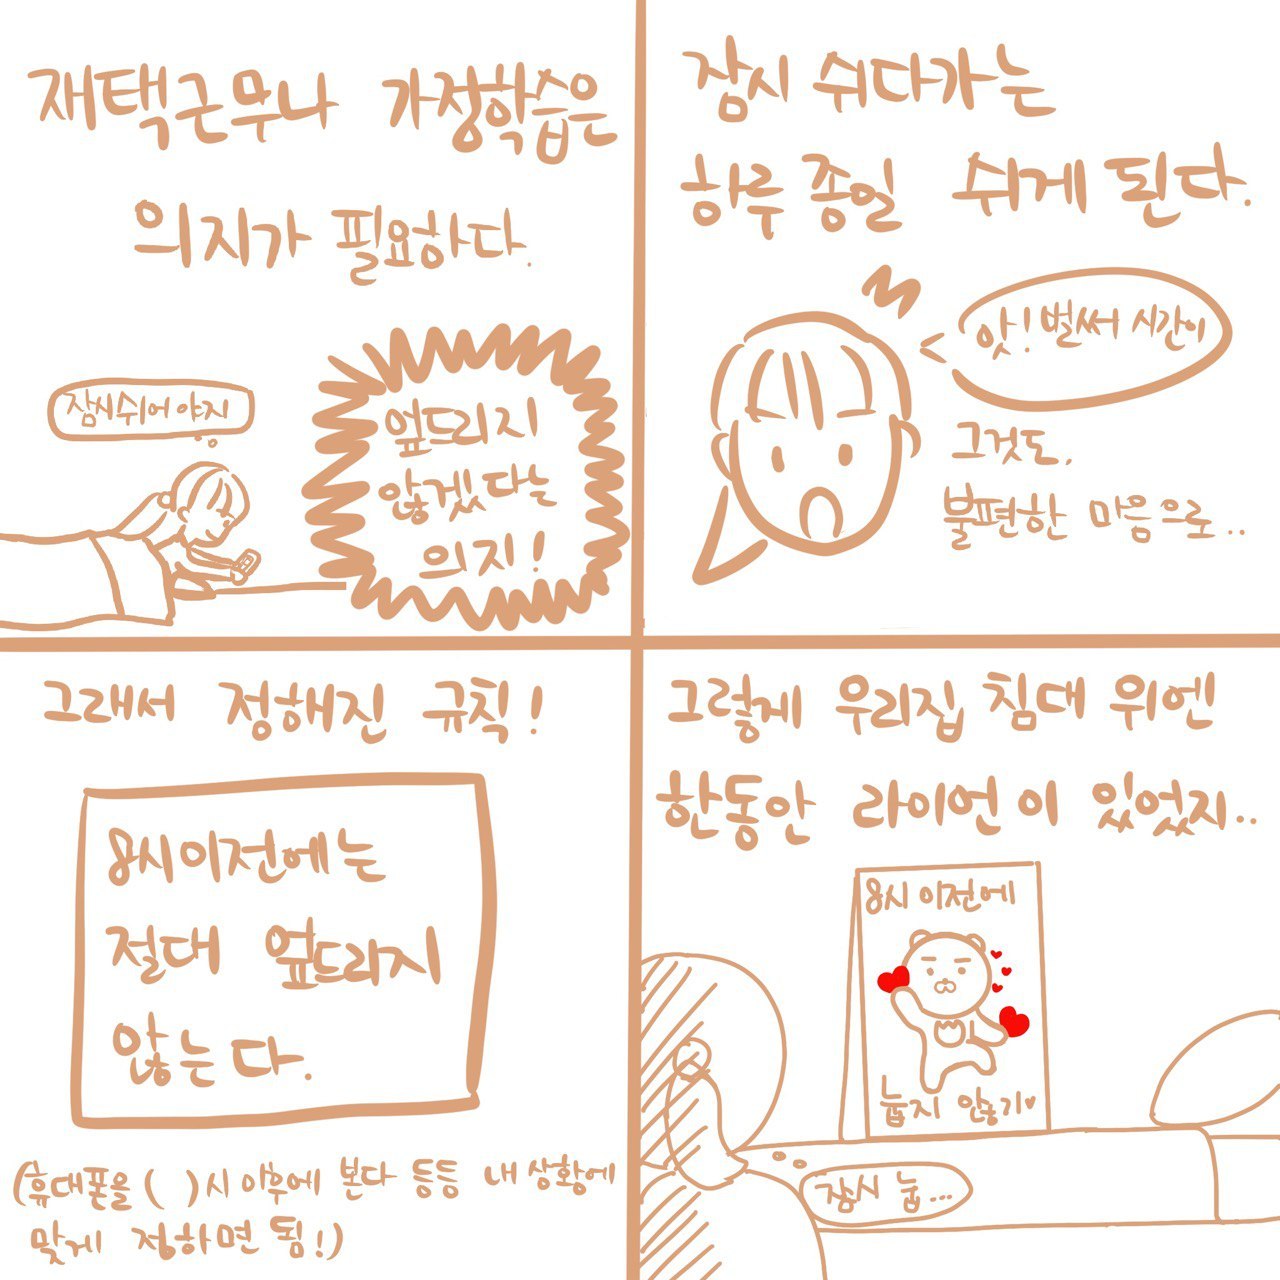 재택근무나 가정학습은
의지가 필요하다.
잠시쉬어야지
엎드리지
않겠다는
의지!
잠시 쉬다가는
하루 종일 쉬게 된다.
앗! 벌써 시간이
그것도,
불편한 마음으로..
그래서 정해진 규칙!
8시이전에는
절대 엎드리지
않는다.
(휴대폰을 ( )시 이후에 본다 등등 내 상황에
맞게 정하면 됨!)
그렇게 우리집 침대 위엔
한동안 라이언이 있었지..
8시 이전에
눕지 않기♥
잠시 눕...